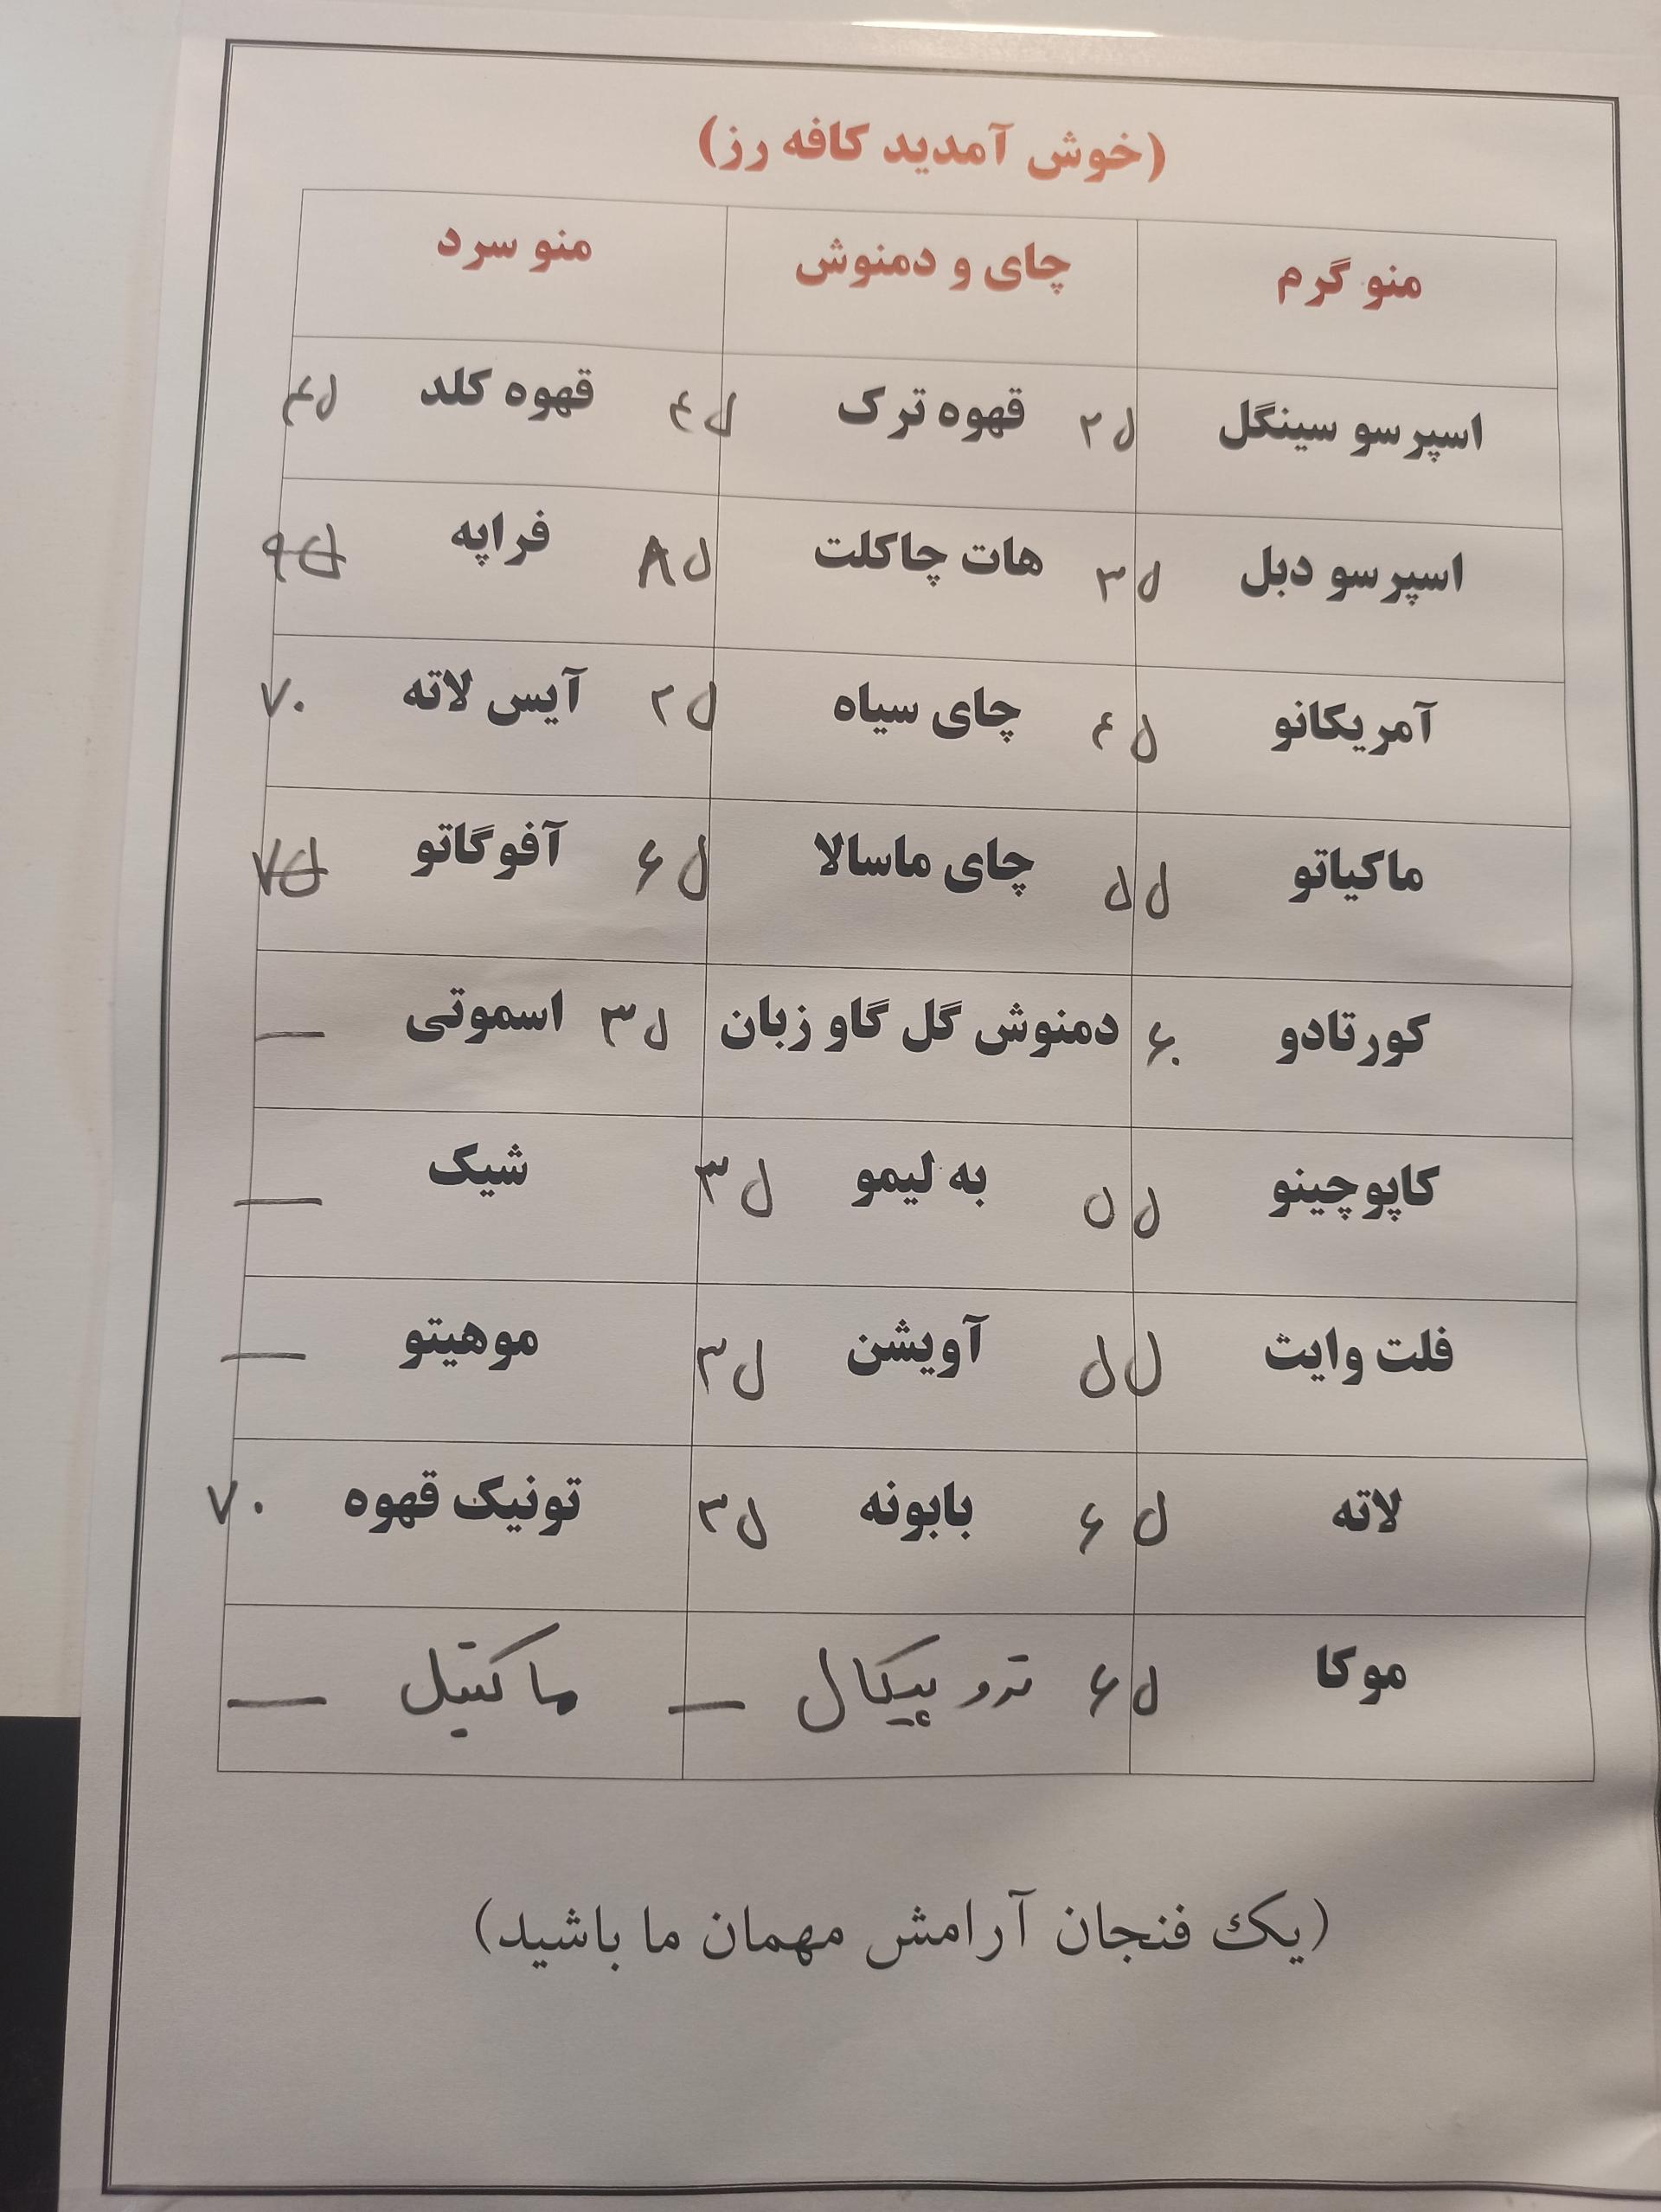 (خوش آمدید کافه رز)
منو گرم چای و دمنوش منو سرد
اسپرسو سینگل ۲۵ قهوه ترک ۴۵ قهوه کلد ۴۵
اسپرسو دبل ۳۵ هات چاکلت ۸۵ فراپه ۹۵
آمریکانو ۴۵ چای سیاه ۲۵ آیس لاته ۷۰
ماکیاتو ۵۵ چای ماسالا ۶۵ آفوگاتو ۷۵
کورتادو ۶۰ دمنوش گل گاو زبان ۳۵ اسموتی —
کاپوچینو ۵۵ به لیمو ۳۵ شیک —
فلت وایت ۵۵ آویشن ۳۵ موهیتو —
لاته ۶۵ بابونه ۳۵ تونیک قهوه ۷۰
موکا ۶۵ تروپیکال — ماکتیل —
(یک فنجان آرامش مهمان ما باشید)